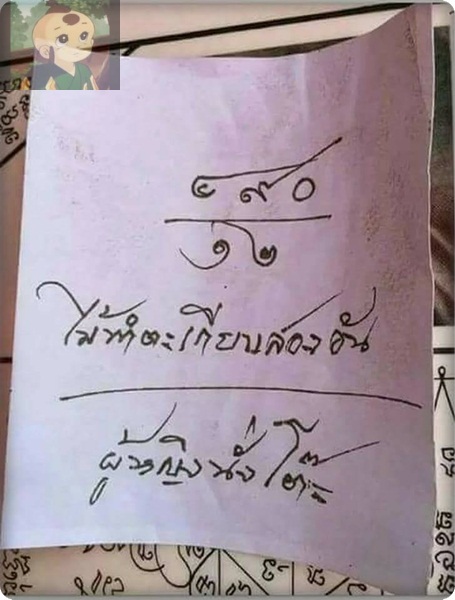 ๔๙๐
๑๒
ไม้ทำตะเกียบสองอัน
ผู้หญิงนั่งโต๊ะ